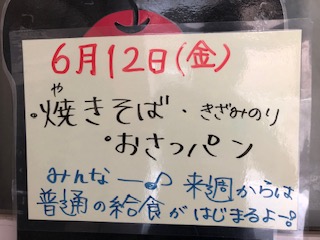 6月12日(金)
や
・焼きそば・きざみのり
・おさつパン
みんなー♪ 来週からは
普通の給食がはじまるよー。